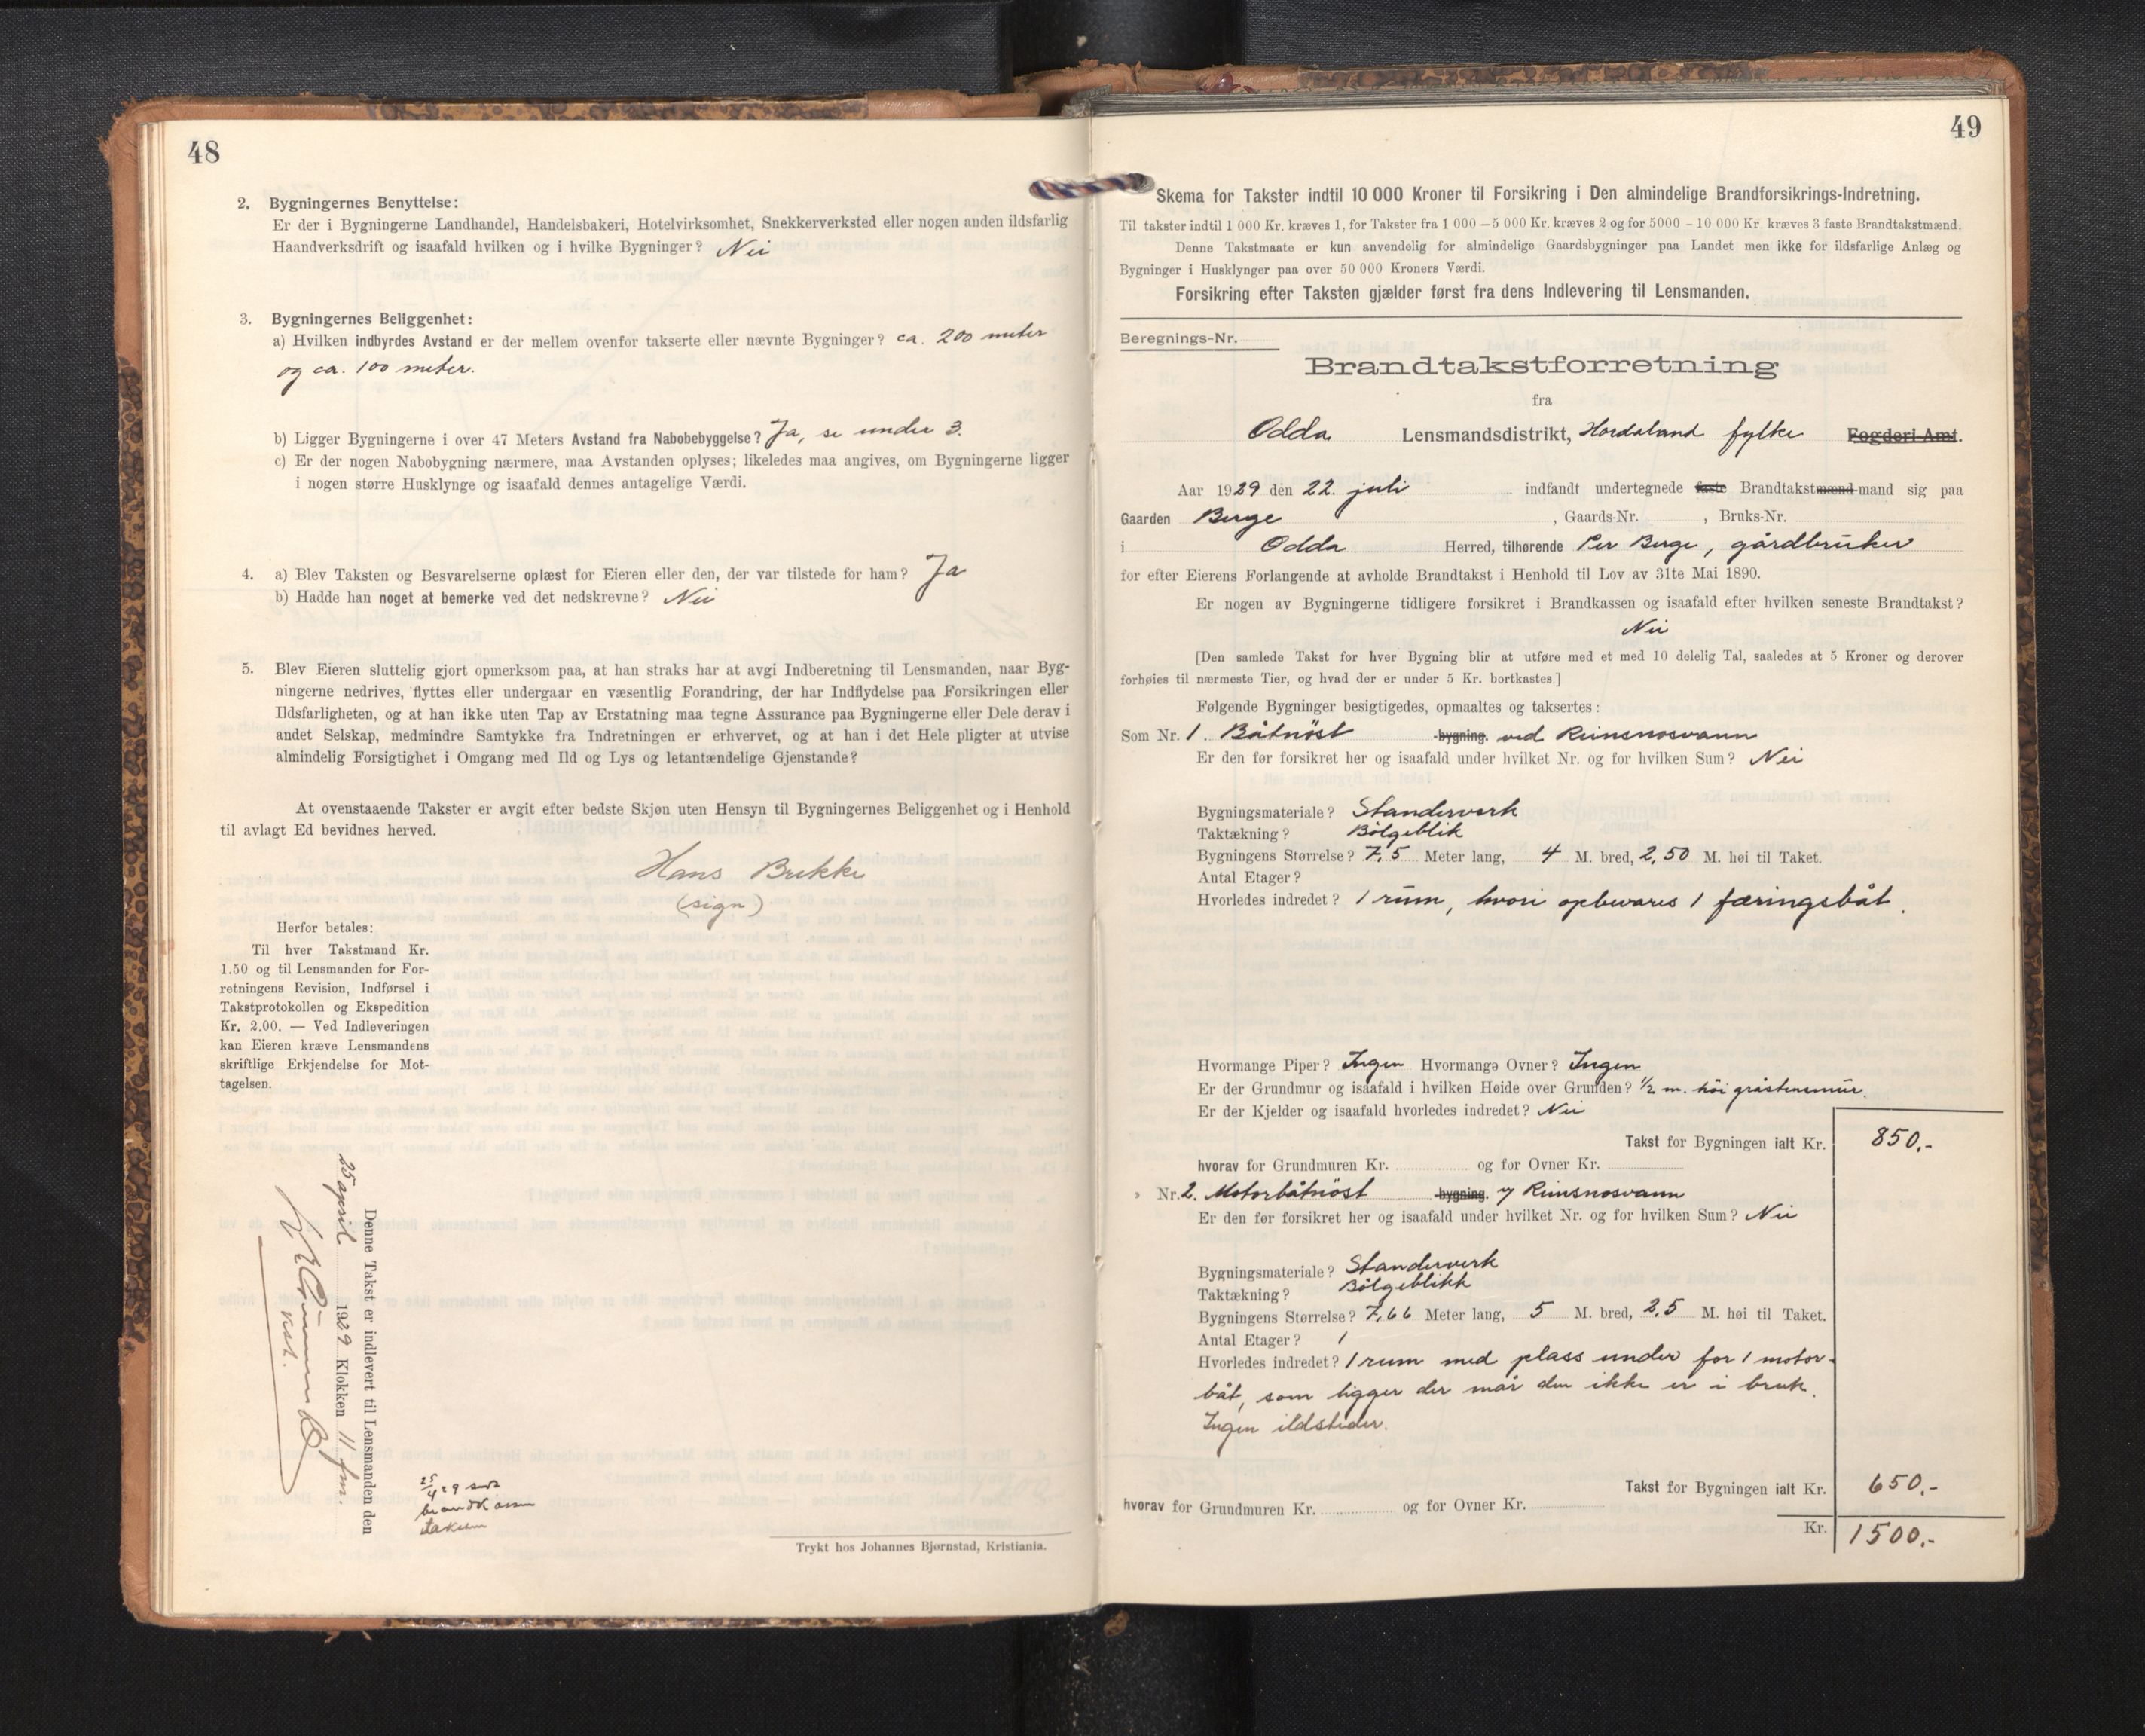 48
2. Bygningernes Benyttelse:
Er der i Bygningerne Landhandel, Handelsbakeri, Hotelvirksomhet, Snekkerverksted eller nogen anden ildsfarlig
Haandverksdrift og isaafald hvilken og i hvilke Bygninger? Nei
3. Bygningernes Beliggenhet:
a) Hvilken indbyrdes Avstand er der mellem ovenfor takserte eller nævnte Bygninger? ca. 200 meter
og ca. 100 meter.
b) Ligger Bygningerne i over 47 Meters Avstand fra Nabobebyggelse? Ja, se under 3.
c) Er der nogen Nabobygning nærmere, maa Avstanden oplyses; likeledes maa angives, om Bygningerne ligger
i nogen større Husklynge og isaafald dennes antagelige Værdi.
4. a) Blev Taksten og Besvarelserne oplæst for Eieren eller den, der var tilstede for ham? Ja
b) Hadde han noget at bemerke ved det nedskrevne? Nei
5. Blev Eieren sluttelig gjort opmerksom paa, at han straks har at avgi Indberetning til Lensmanden, naar Byg-
ningerne nedrives, flyttes eller undergaar en væsentlig Forandring, der har Indflydelse paa Forsikringen eller
Ildsfarligheten, og at han ikke uten Tap av Erstatning maa tegne Assurance paa Bygningerne eller Dele derav i
andet Selskap, medmindre Samtykke fra Indretningen er erhvervet, og at han i det Hele pligter at utvise
almindelig Forsigtighet i Omgang med Ild og Lys og letantændelige Gjenstande?
At ovenstaaende Takster er avgit efter bedste Skjøn uten Hensyn til Bygningernes Beliggenhet og i Henhold
til avlagt Ed bevidnes herved.
Hans Bukke
(sign)
Herfor betales:
Til hver Takstmand Kr.
1.50 og til Lensmanden for For-
retningens Revision, Indførsel i
Takstprotokollen og Ekspedition
Kr. 2.00. — Ved Indleveringen
kan Eieren kræve Lensmandens
skriftlige Erkjendelse for Mot-
tagelsen.
Denne Takst er indlevert til Lensmanden den
25 april 1929 Klokken 11 fm.
25/4 29
Trykt hos Johannes Bjørnstad, Kristiania.
49
Skema for Takster indtil 10 000 Kroner til Forsikring i Den almindelige Brandforsikrings-Indretning.
Til takster indtil 1 000 Kr. kræves 1, for Takster fra 1 000 – 5 000 Kr. kræves 2 og for 5000 – 10 000 Kr. kræves 3 faste Brandtakstmænd.
Denne Takstmaate er kun anvendelig for almindelige Gaardsbygninger paa Landet men ikke for ildsfarlige Anlæg og
Bygninger i Husklynger paa over 50 000 Kroners Værdi.
Forsikring efter Taksten gjælder først fra dens Indlevering til Lensmanden.
Beregnings-Nr.
Brandtakstforretning
fra
Odda Lensmandsdistrikt, Hordaland fylke Fogderi Amt.
Aar 1929 den 22. juli indfandt undertegnede faste Brandtakstmænd-mand sig paa
Gaarden Berge, Gaards-Nr. , Bruks-Nr.
i Odda Herred, tilhørende Per Berge, gårdbruker
for efter Eierens Forlangende at avholde Brandtakst i Henhold til Lov av 31te Mai 1890.
Er nogen av Bygningerne tidligere forsikret i Brandkassen og isaafald efter hvilken seneste Brandtakst?
Nei
[Den samlede Takst for hver Bygning blir at utføre med et med 10 delelig Tal, saaledes at 5 Kroner og derover
forhøies til nærmeste Tier, og hvad der er under 5 Kr. bortkastes]
Følgende Bygninger besigtigedes, opmaaltes og taksertes:
Som Nr. 1. Båtnöst bygning. ved Reinsnosvann
Er den før forsikret her og isaafald under hvilket Nr. og for hvilken Sum? Nei
Bygningsmateriale? Standerverk
Taktækning? Bölgeblik
Bygningens Størrelse? 7,5 Meter lang, 4 M. bred, 2,50 M. høi til Taket.
Antal Etager?
Hvorledes indredet? 1 rum, hvori opbevares 1 færingsbåt.
Hvormange Piper? Ingen Hvormange Ovner? Ingen
Er der Grundmur og isaafald i hvilken Høide over Grunden? 1/2 m. höi gråstensmur.
Er der Kjelder og isaafald hvorledes indredet? Nei
Takst for Bygningen ialt Kr. 850.-
hvorav for Grundmuren Kr. og for Ovner Kr.
» Nr. 2. Motorbåtnöst bygning. v/ Reinsnosvann
Er den før forsikret her og isaafald under hvilket Nr. og for hvilken Sum? Nei
Bygningsmateriale? Standerverk
Taktækning? Bölgeblikk
Bygningens Størrelse? 7,66 Meter lang, 5 M. bred, 2,5 M. høi til Taket.
Antal Etager? 1
Hvorledes indredet? 1 rum med plass under for 1 motor-
båt, som ligger der når den ikke er i bruk.
Ingen ildsteder.
Takst for Bygningen ialt Kr. 650.-
hvorav for Grundmuren Kr. og for Ovner Kr.
Kr. 1500.-